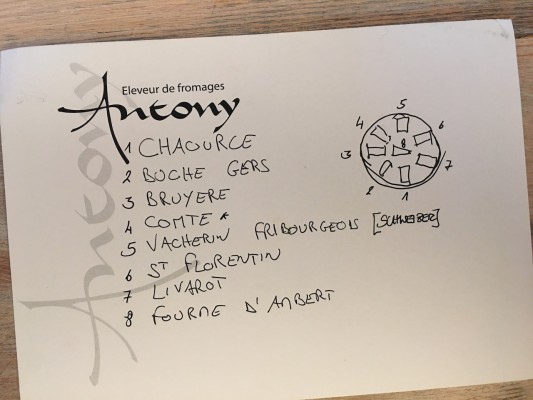 Eleveur de fromages
Antony
Antony
1 CHAOURCE
2 BUCHE GERS
3 BRUYERE
4 COMTE *
5 VACHERIN FRIBOURGEOIS
6 ST FLORENTIN
7 LIVAROT
8 FOURME D'AMBERT
5
4 6
8
3 7
2
1